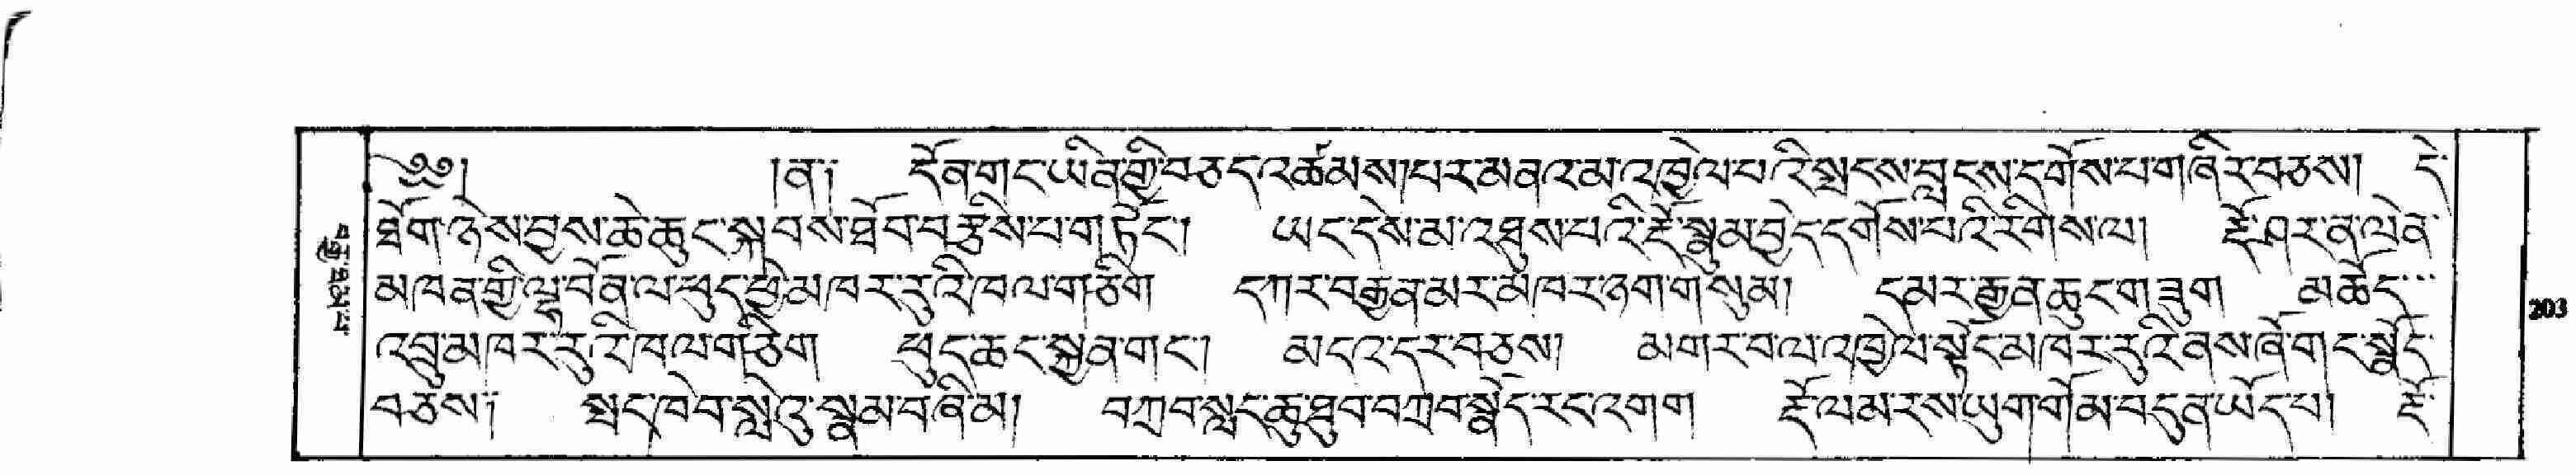 ༄༅། །ན། དོན་གང་ཡིན་གྱི་བཅད་འཚམས།པར་མནའ་མ་འཁྱེལ་བ་འི་སྤྲངས་བླངས་དགོས་པ་གཞིར་བཅས། དེ་
ཐོག་ཉེས་བྱས་ཆེ་ཆུང་སྐབས་ཐོབ་བརྩིས་པ་གཏོང་། ཡང་དེས་མ་འཐུས་པའི་རྡོ་སྣུམ་བྱེད་དགོས་པའི་རིགས་ལ། རྡོ་ཤར་ན་ལེན་
མཁན་གྱི་ལྷ་བོན་ལ་ཕུད་ཕྱེ་མཁར་རུའི་ཁལ་གཅིག དཀར་བརྒྱན་མར་མཁར་ཉག་གསུམ། དམར་རྒྱན་ཆུང་གཟུག མཆོད་
འབྲུ་མཁར་རུའི་ཁལ་གཅིག ཕུད་ཆང་སྐྱན་གང་། མདའ་དར་བཅས། མགར་བ་ལ་འཁྱེལ་སྟེང་མཁར་རུའི་ནས་ཞོ་གང་སྣོད་
བཅས། སྤྲང་ཁེབ་སླེའུ་སྣམ་བ་ཞིམ། བཀྲབ་སླང་ཆུ་ཐུབ་བཀྲབ་སྣོད་རང་འགག རྡོ་ལ་མརས་ཡུག་གོམ་བདུན་ཡོད་པ། རྡོ་
203